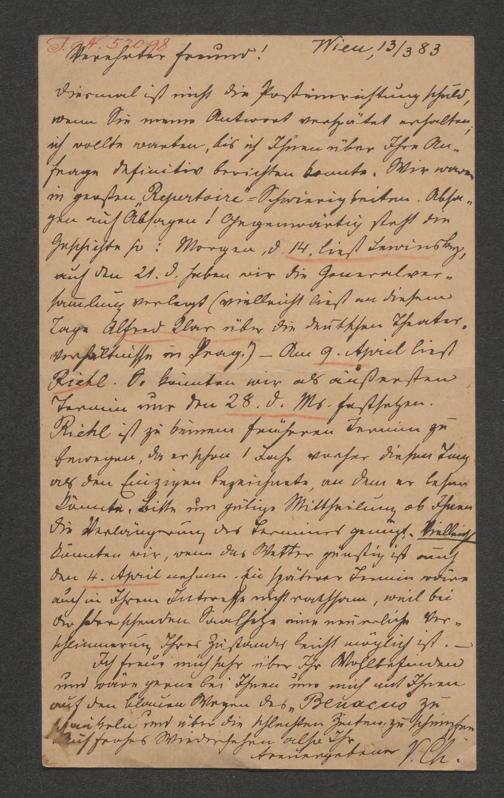 J. N. 53098
Verehrter Freund! Wien, 13/3 83
Diesmal ist nicht die Posteinrichtung schuld,
wenn Sie meine Antwort verspätet erhalten;
ich wollte warten, bis ich Ihnen über Ihre An-
frage definitiv berichten konnte. Wir waren
in großen „Repertoire"-Schwierigkeiten. Absa-
gen auf Absagen! Gegenwärtig steht die
Geschichte so: Morgen, d. 14. liest Lewinsky,
auf den 21. d. haben wir die Generalver-
sammlung verlegt (vielleicht liest an diesem
Tage Alfred Klar über die deutschen Theater-
verhältnisse in Prag.) – Am 9. April liest
Riehl. So könnten wir als äußersten
Termin nur den 28. d. Ms. festsetzen.
Riehl ist zu keinem früheren Termin zu
bewegen, da er schon 1 Jahr vorher diesen Tag
als den Einzigen bezeichnete, an dem er lesen
könnte. Bitte um gütige Mittheilung ob Ihnen
die Verlängerung des Termines genügt. Vielleicht
könnten wir, wenn das Wetter günstig ist auch
den 4. April nehmen. Ein späterer Termin wäre
auch in Ihrem Interesse nicht rathsam, weil bei
der herrschenden Saalhitze eine neuerliche Ver-
schlimmerung Ihres Zustandes leicht möglich ist. –
Ich freue mich sehr über Ihr Wohlbefinden
und wäre gerne bei Ihnen um mich mit Ihnen
auf den blauen Wogen des „Benacus" zu
schaukeln und über die schlechten Zeiten zu schimpfen
Auf frohes Wiedersehen also Ihr
treuergebener V. Ch.